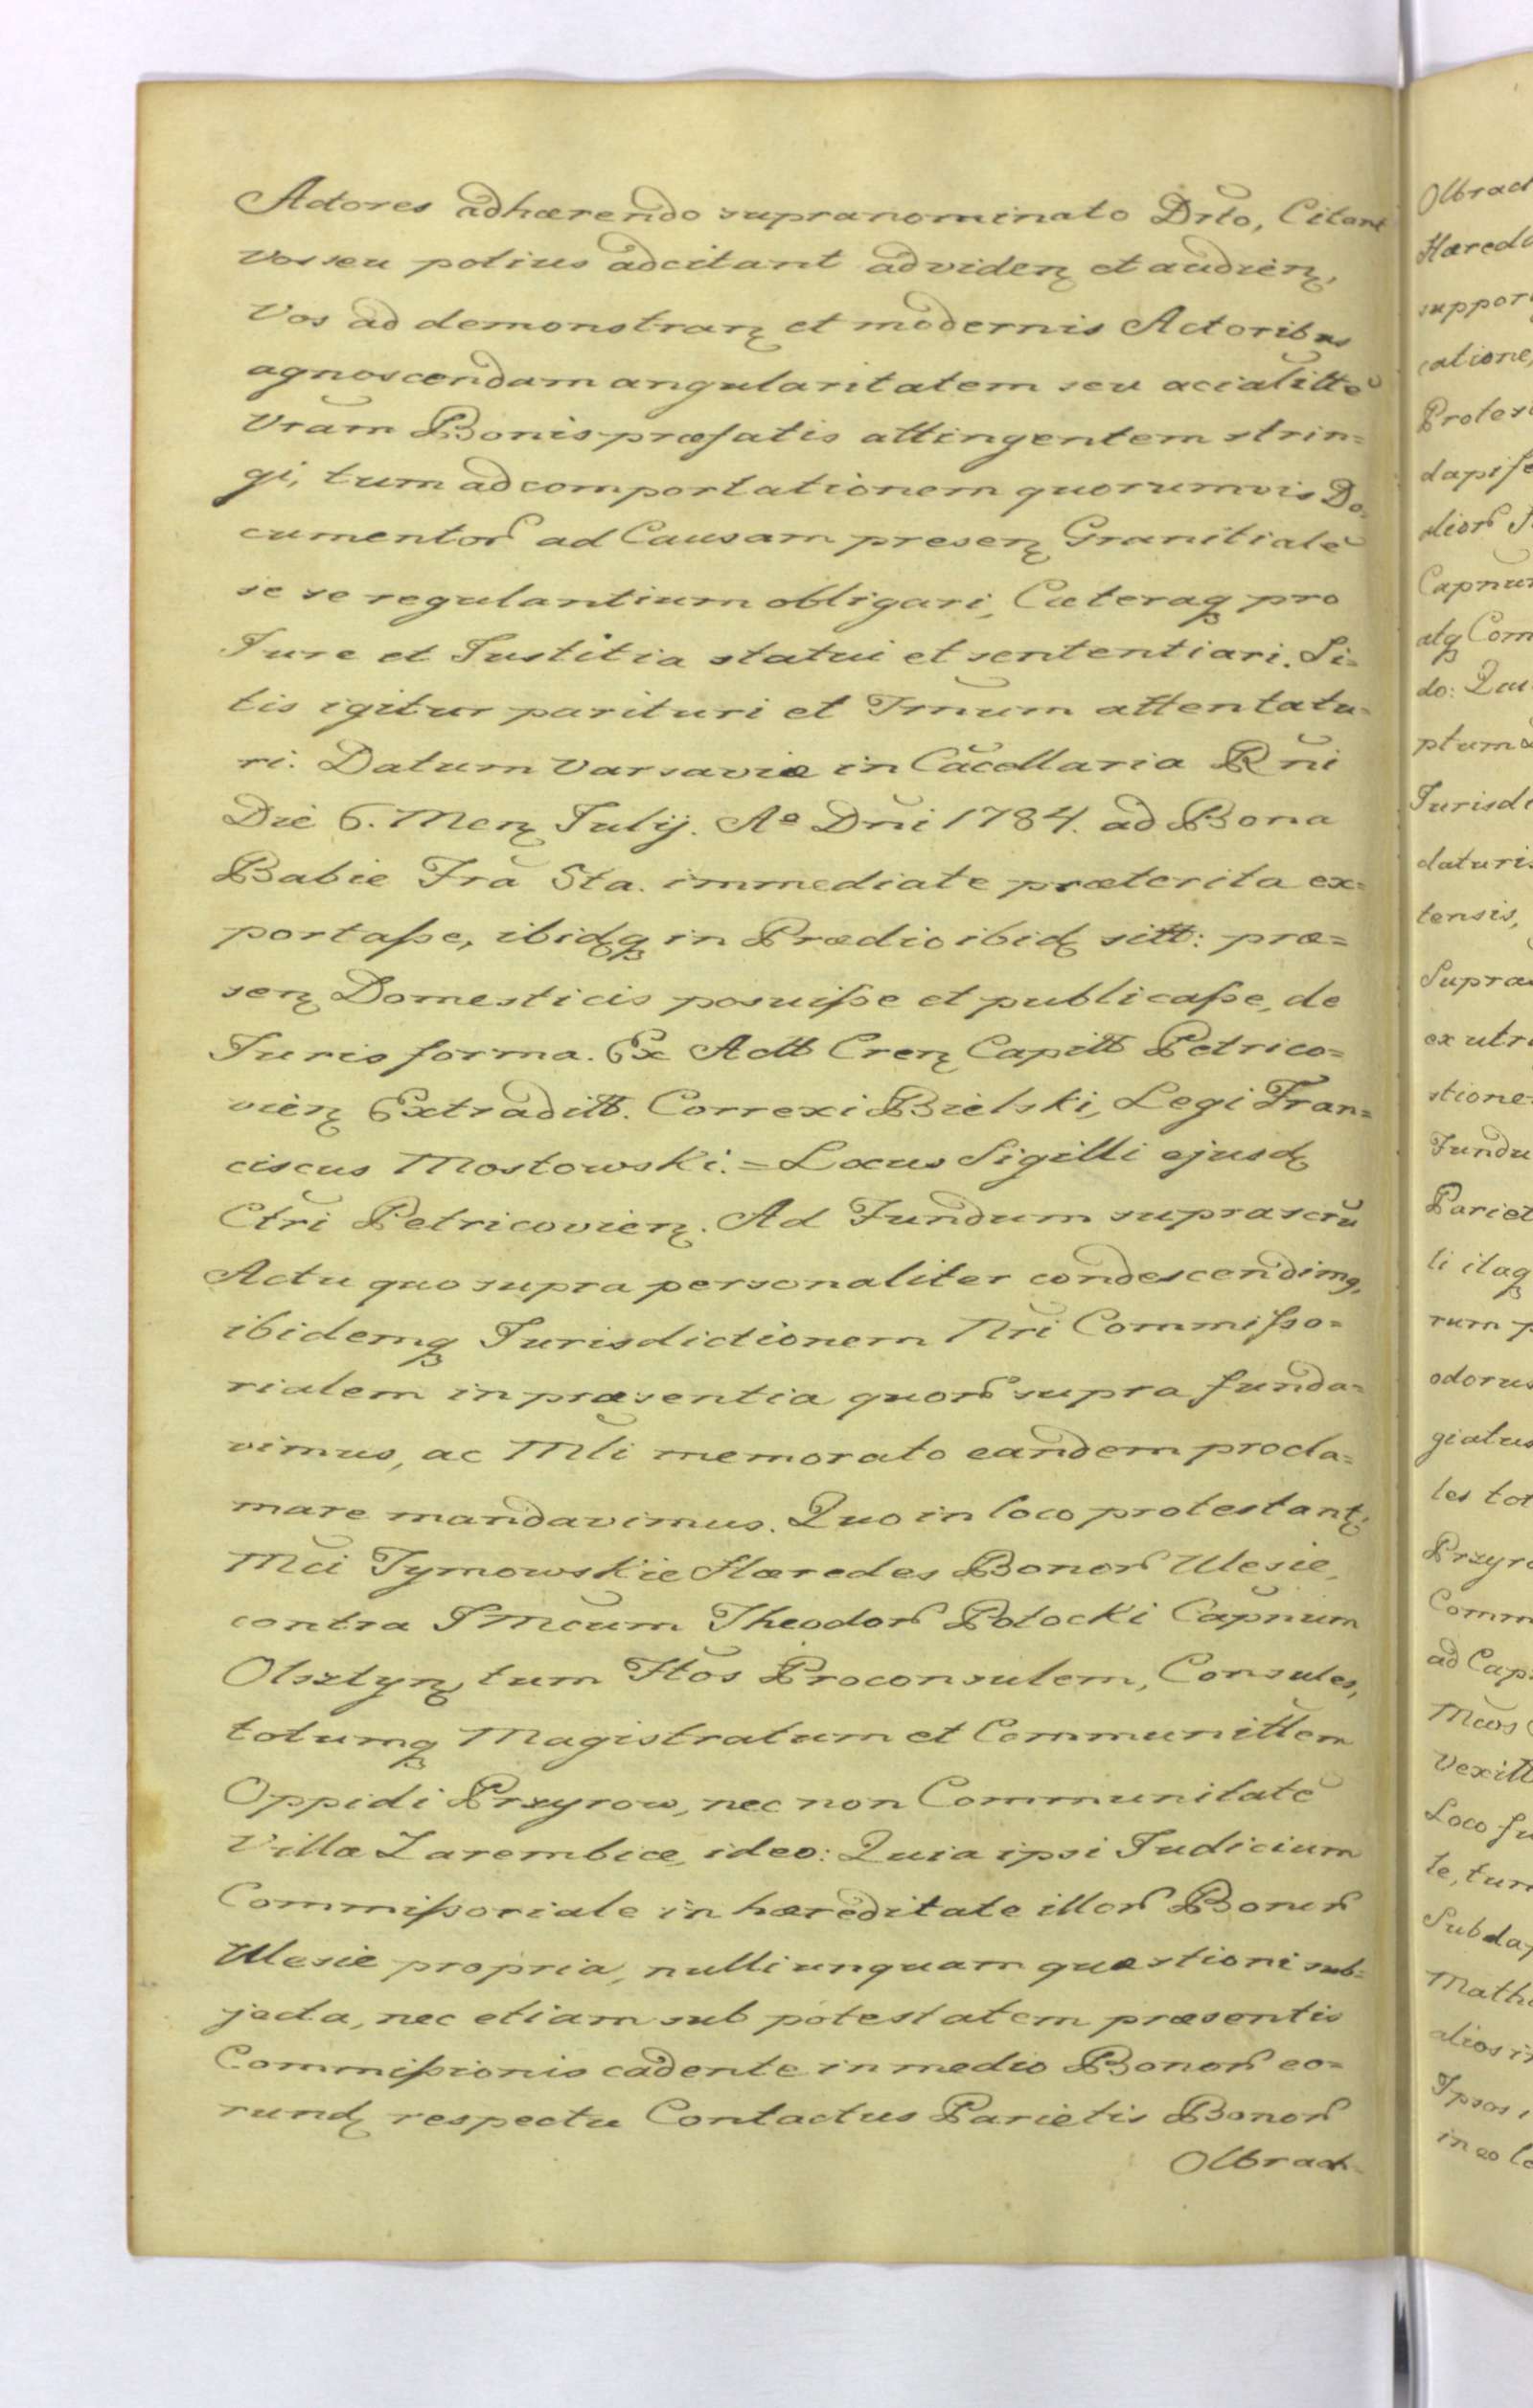 Actores adhærendo supranominato Drto, Citant
vos seu potius adcitant ad videnꝫ et audienꝫ,
Vos ad demonstranꝫ et modernis Actoribus
agnoscendam angularitatem seu acialitte
Vram Bonis præfatis attingentem strin=
gi, tum ad comportationem quorumvis Do=
cumentor ad Causam presenꝫ Granitiale
se se regulantium obligari, Cæteraq pro
Jure et Justitia statui et sententiari. Si=
tis igitur parituri et Trnum attentatu=
ri. Datum Varsaviæ in Cacellaria Rni
Die 6. Menꝫ Julij. Aº Dni 1784. ad Bona
Babie Fra Sta. immediate præterita ex=
portaſse, ibidꝫq in Prædio ibidꝫ sitt: præ=
senꝫ Domesticis posuiſse et publicaſse, de
Juris forma. Ex Actt Crenꝫ Capitt Petrico=
vienꝫ Extraditt. Correxi Bielski, Legi Fran=
ciscus Mostowski. = Locus Sigilli ejusdꝫ
Ctri Petricovienꝫ. Ad Fundum suprascru
Actu quo supra personaliter condescendimq,
ibidemq Jurisdictionem Nri Commiſso=
rialem in præsentia quor supra funda=
vimus, ac Mli memorato eandem procla=
mare mandavimus. Quo in loco protestantꝫ
Mci Tymowskie Hæredes Bonor Ulesie,
contra JMcum Theodor Potocki Capnum
Olsztynꝫ tum Ftos Proconsulem, Consules,
totumq Magistratum et Communittem
Oppidi Przyrow, nec non Communitate
Villæ Zarembice, ideo: Quia ipsi Judicium
Commiſsoriale in hæreditate illor Bonor
Ulesie propria, nulli unquam quæstioni sub=
jecta, nec etiam sub potestatem præsentis
Commiſsionis cadente in medio Bonor eo=
rundꝫ respectu Contactus Parietis Bonor
Olbrach=